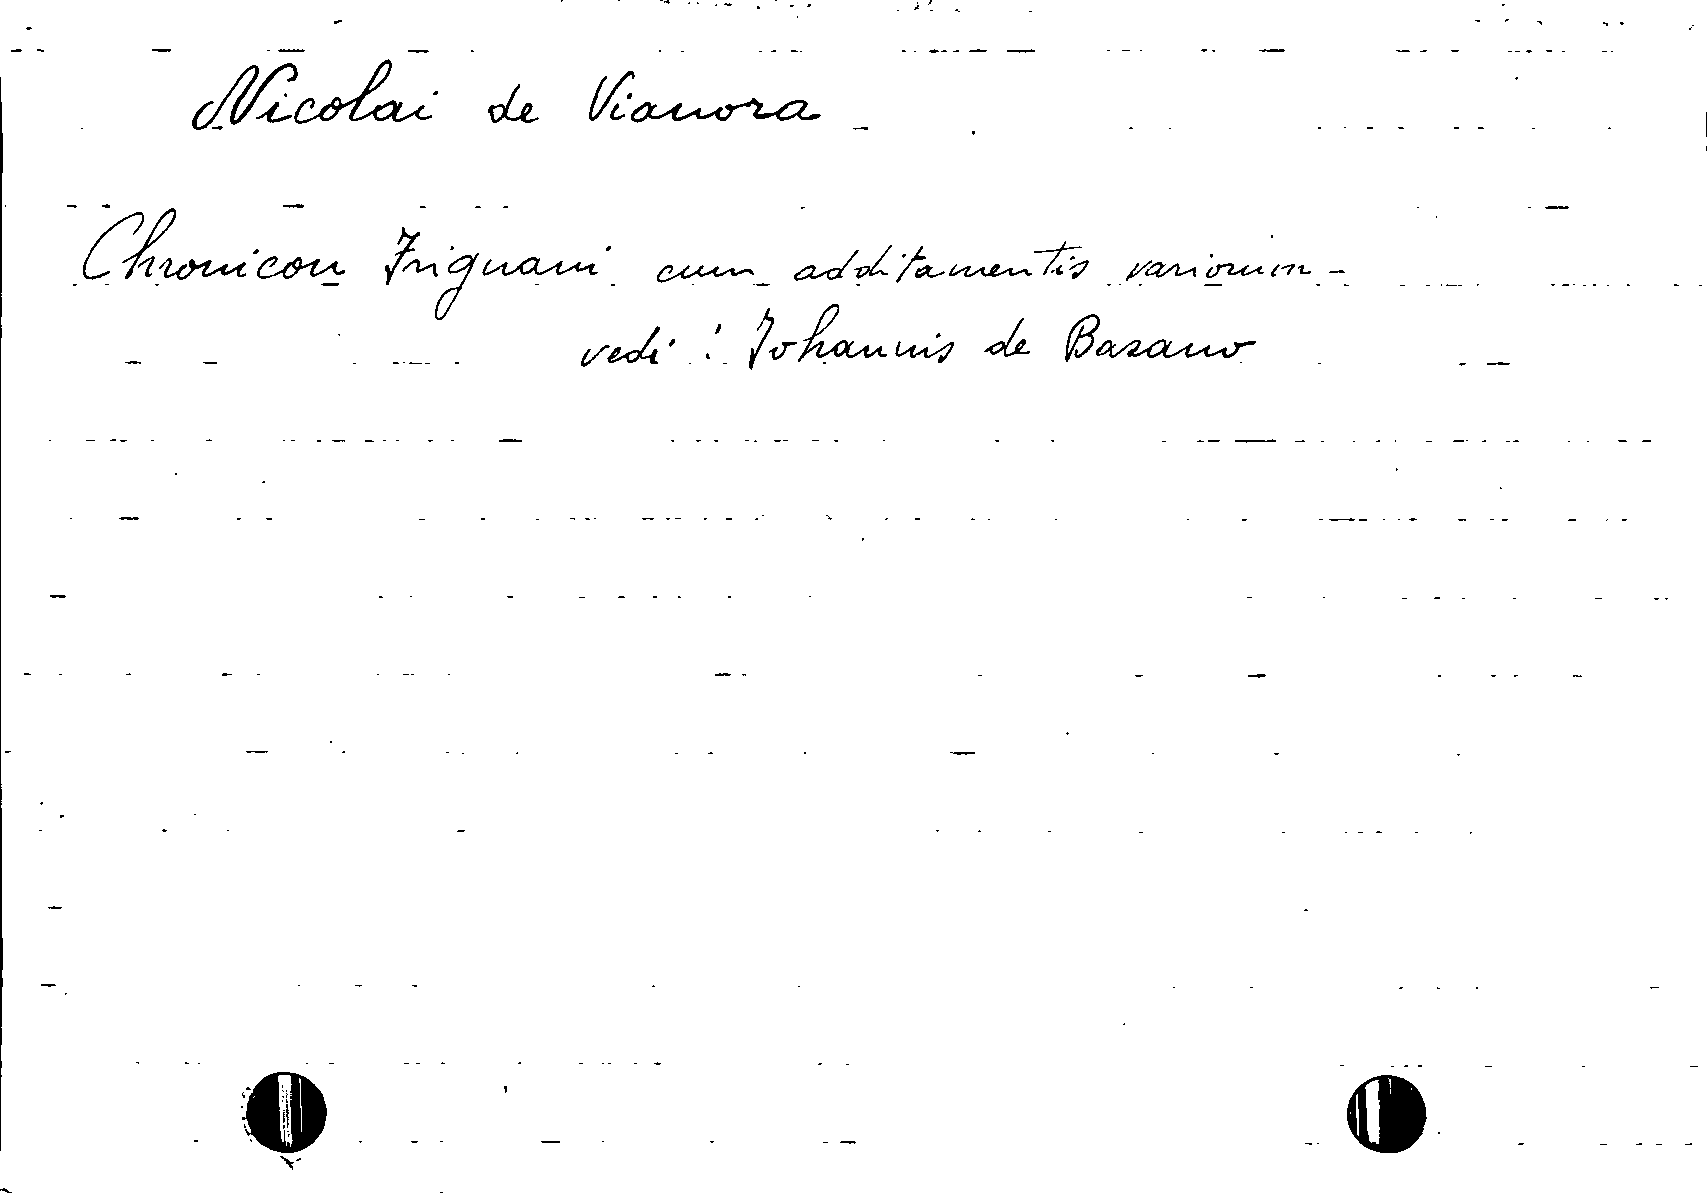 Nicolai de Vianora
Chronicon Frignani cum additamentis variorum -
vedi : Johannis de Bazano